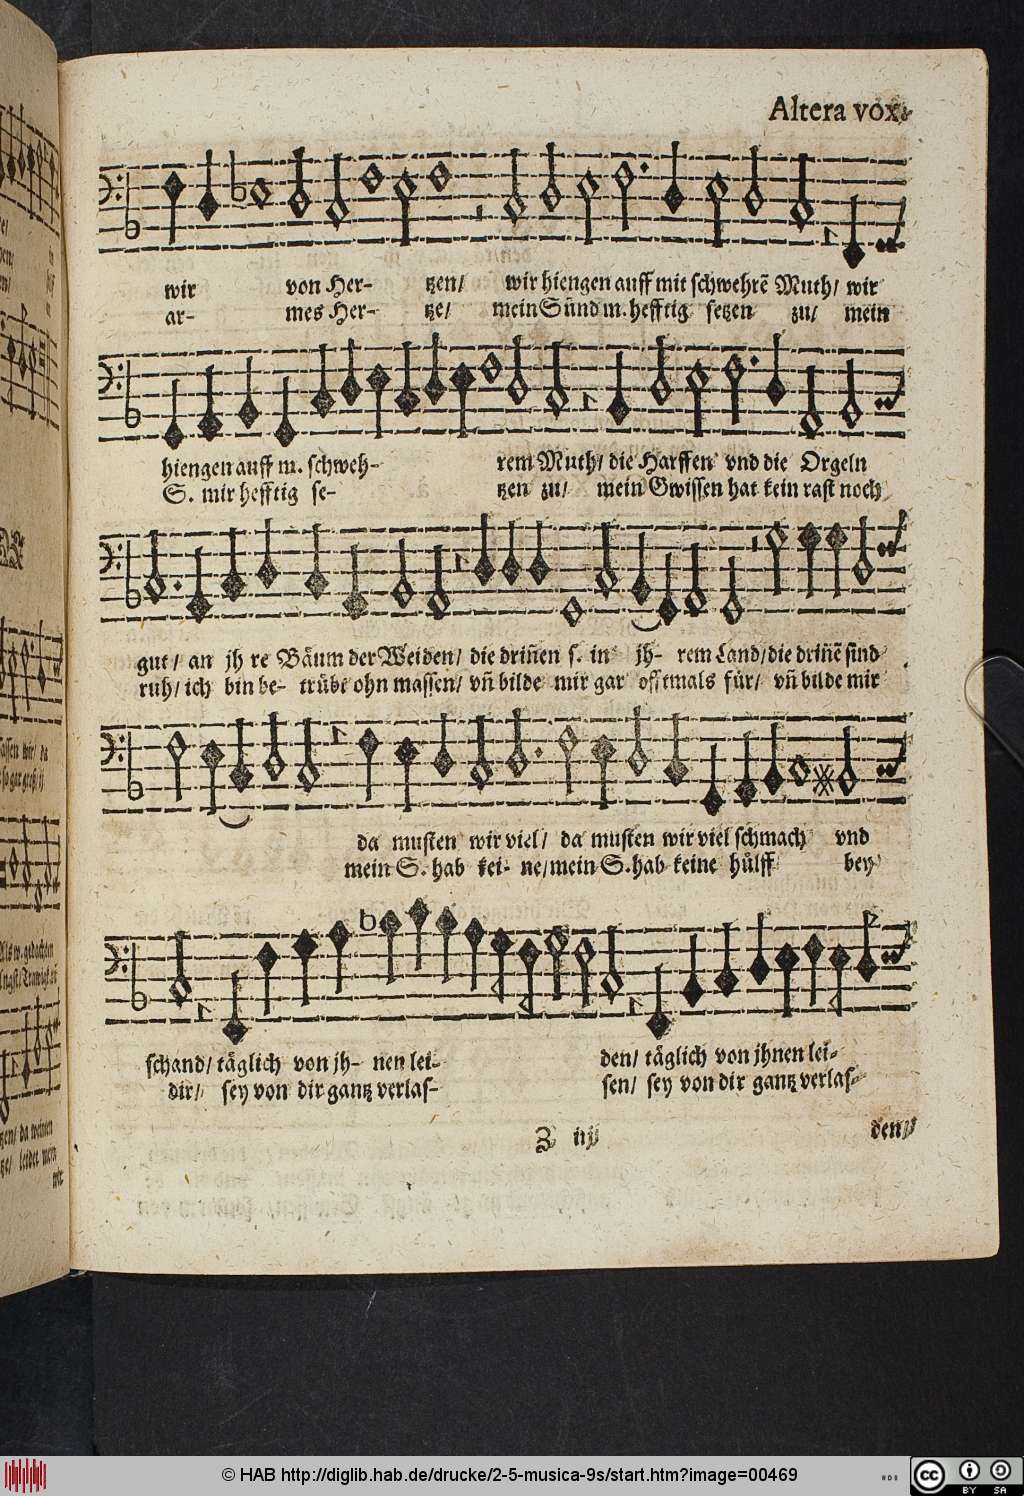 Altera vox.
wir von Her- tzen/ wir hiengen auff mit schwehrẽ Muth/ wir
ar- mes Her- tze/ mein Sünd m. hefftig setzen zu/ mein
hiengen auff m. schweh- rem Muth/ die Harffen vnd die Orgeln
S. mir hefftig se- tzen zu/ mein Gwissen hat kein rast noch
gut/ an jh re Bäum der Weiden/ die driñen s. in jh- rem Land/ die driñẽ sind
ruh/ ich bin be- trübt ohn massen/ vñ bilde mir gar offtmals für/ vñ bilde mir
da musten wir viel/ da musten wir viel schmach vnd
mein S. hab kei- ne/ mein S. hab keine hülff bey
schand/ täglich von jh- nen lei- den/ täglich von jhnen lei-
dir/ sey von dir gantz verlas- sen/ sey von dir gantz verlas-
Z iij den/
© HAB http://diglib.hab.de/drucke/2-5-musica-9s/start.htm?image=00469
cc BY SA